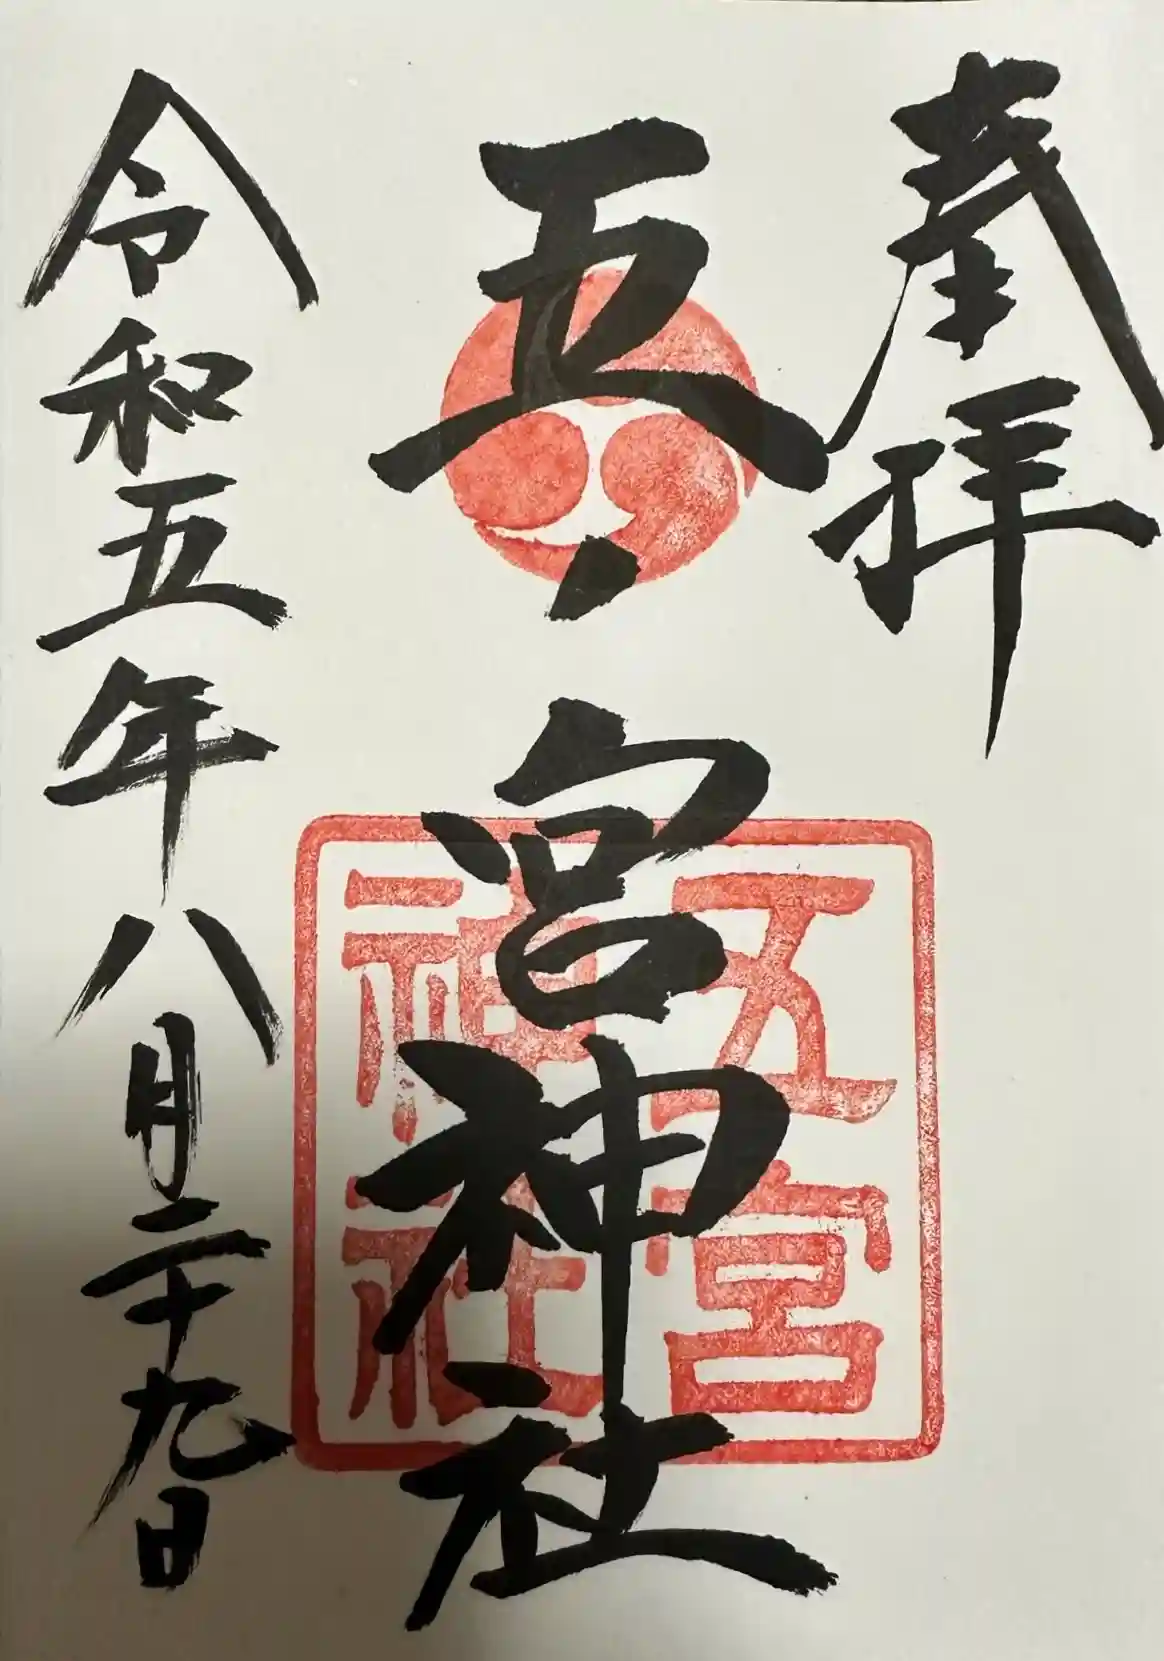 奉拝
五ノ宮神社
五宮
神社
令和五年八月二十九日